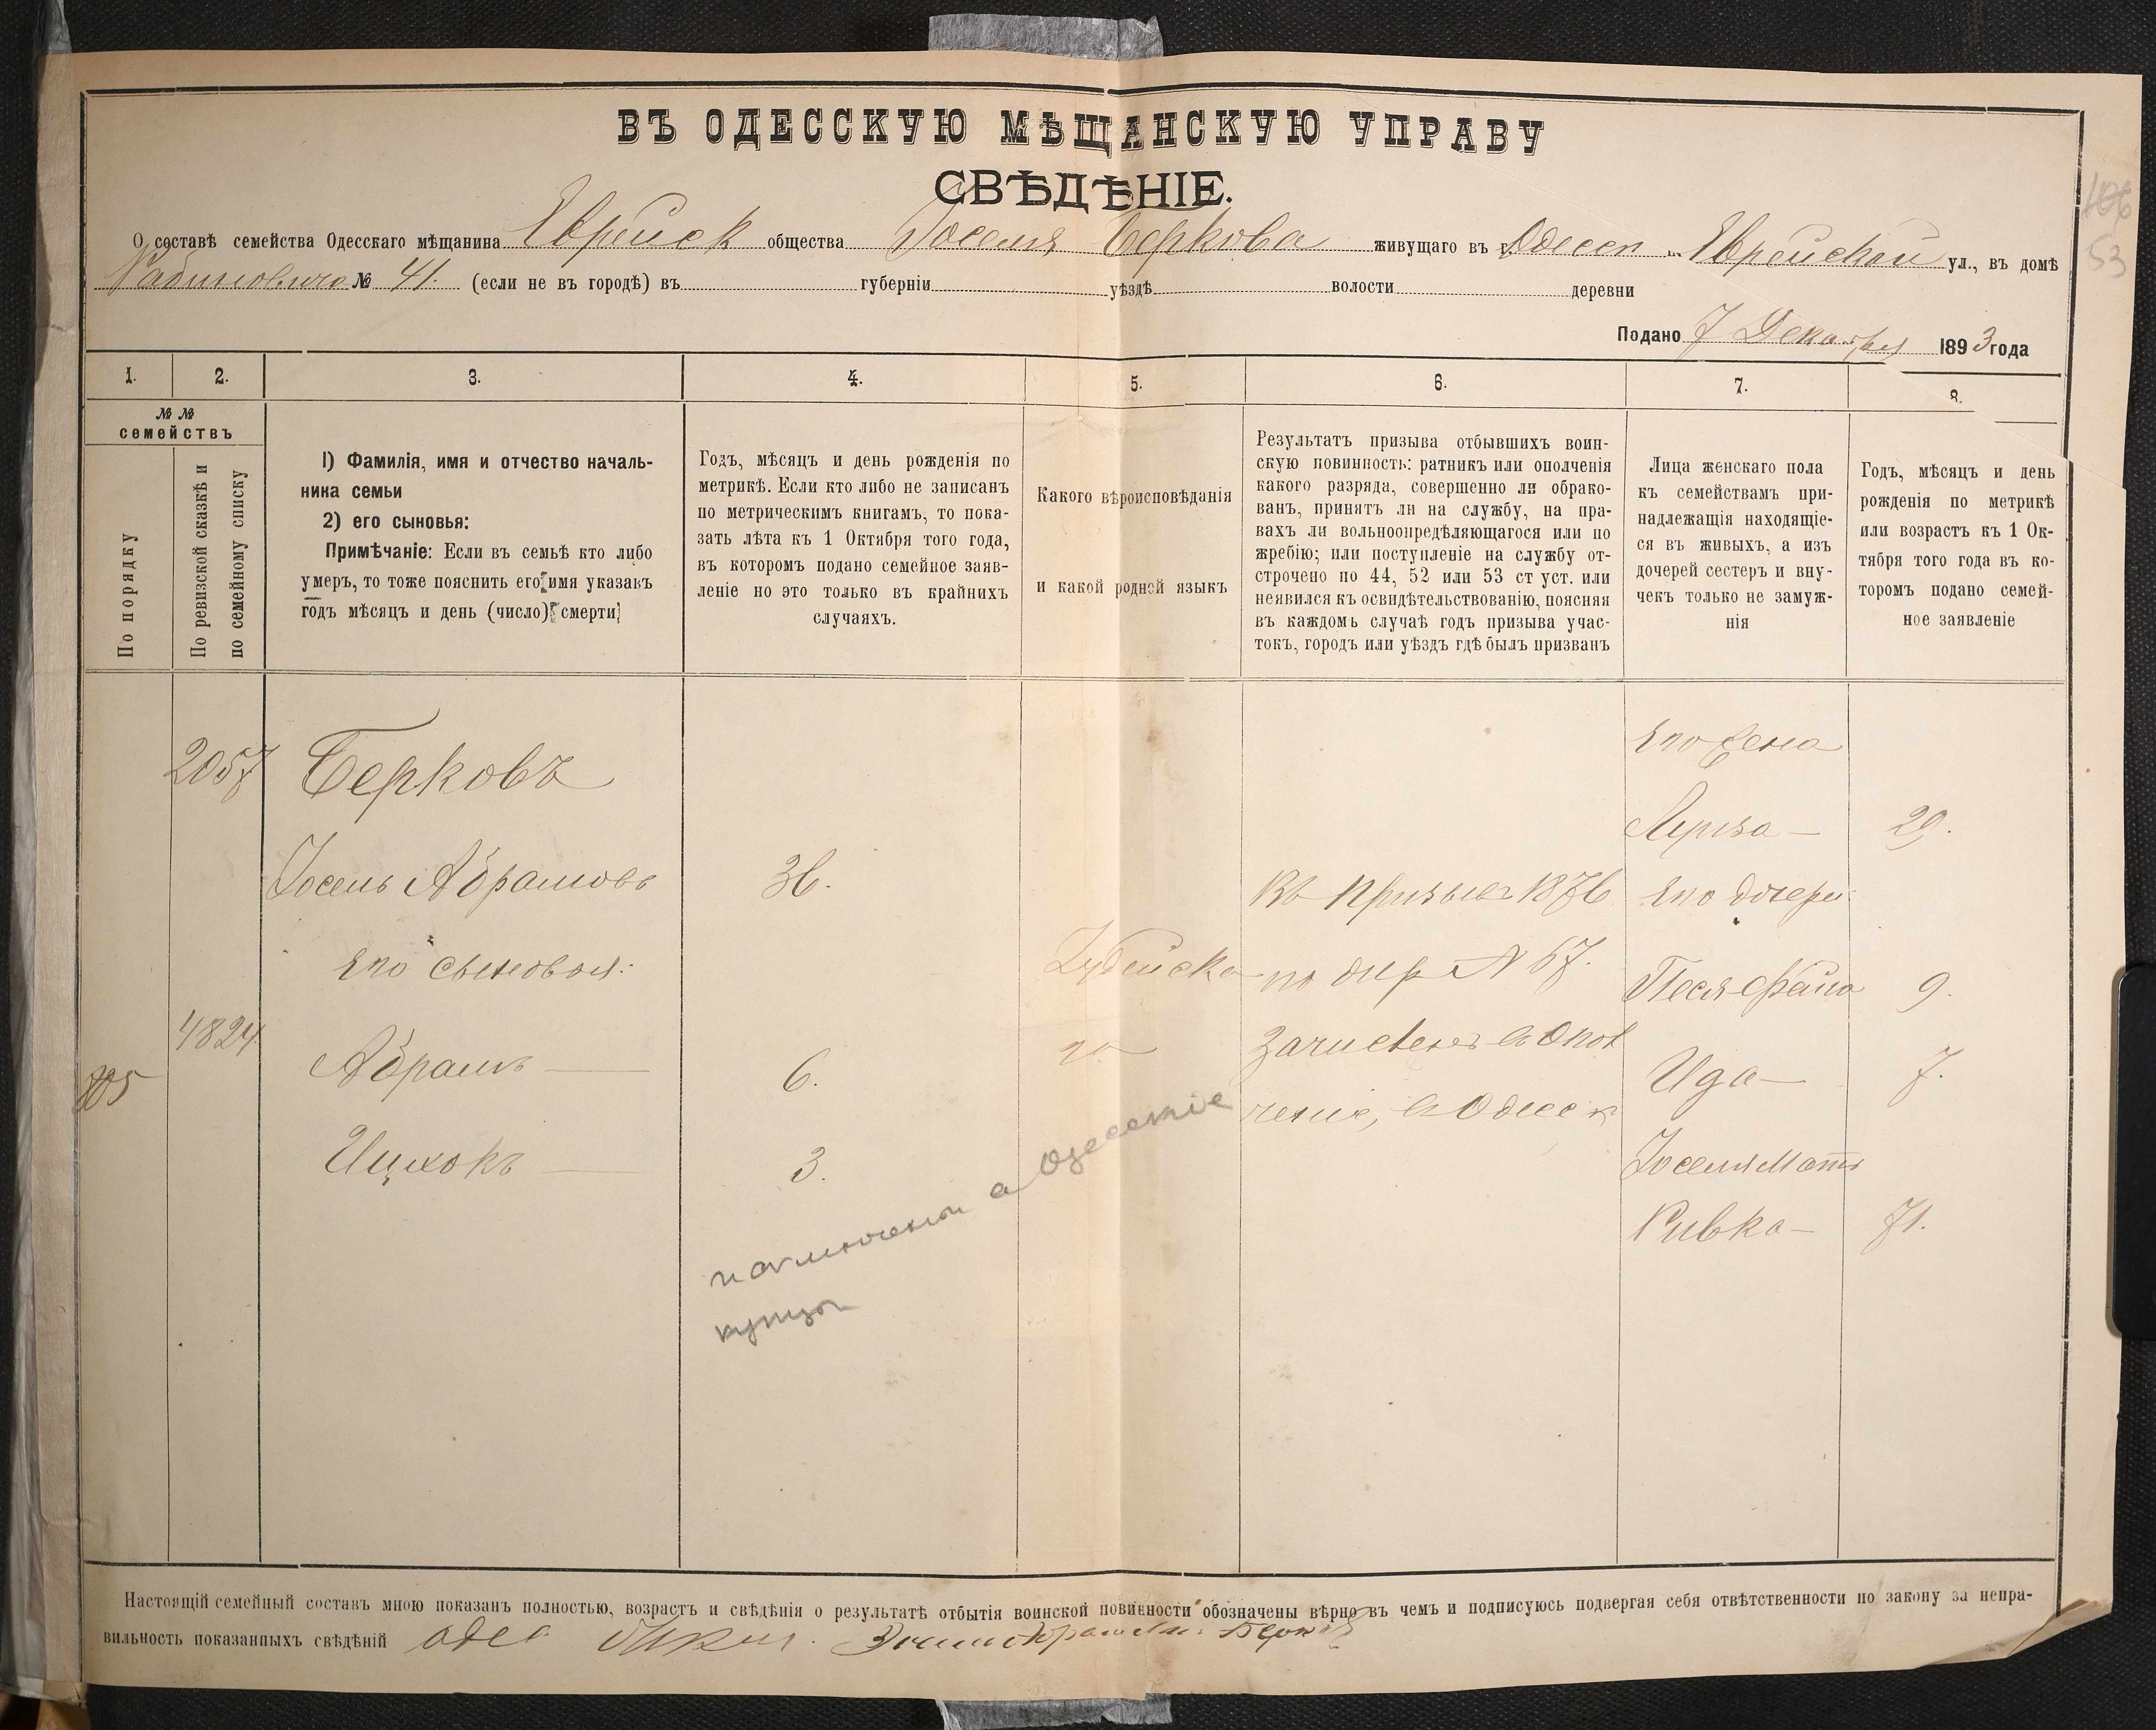 ВЪ ОДЕССКУЮ МѢЩАНСКУЮ УПРАВУ
СВѢДѢНІЕ.
О составѣ семейства Одесскаго мѣщанина Еврейск общества Іоселя Беркова живущаго въ Одессѣ Еврейской ул., въ домѣ
Рабиновича № 41. (если не въ городѣ) въ губерніи уѣздѣ волости деревни
Подано 7 Декабря 1893 года
53
1. 2. 3. 4. 5. 6. 7. 8.
№ №
семействъ
По порядку
По ревизской сказкѣ и
по семейному списку
1) Фамилія, имя и отчество началь-
ника семьи
2) его сыновья:
Примѣчаніе: Если въ семьѣ кто либо
умеръ, то тоже пояснить его имя указавъ
годъ мѣсяцъ и день (число) смерти
Годъ, мѣсяцъ и день рожденія по
метрикѣ. Если кто либо не записанъ
по метрическимъ книгамъ, то пока-
зать лѣта къ 1 Октября того года,
въ которомъ подано семейное заяв-
леніе но это только въ крайнихъ
случаяхъ.
Какого вѣроисповѣданія
и какой родной языкъ
Результатъ призыва отбывшихъ воин-
скую повинность: ратникъ или ополченія
какого разряда, совершенно ли обрако-
ванъ, принятъ ли на службу, на пра-
вахъ ли вольноопредѣляющагося или по
жребію; или поступленіе на службу от-
строчено по 44, 52 или 53 ст уст. или
неявился къ освидѣтельствованію, поясняя
въ каждомъ случаѣ годъ призыва учас-
токъ, городъ или уѣздъ гдѣ былъ призванъ
Лица женскаго пола
къ семействамъ при-
надлежащія находящіе-
ся въ живыхъ, а изъ
дочерей сестеръ и вну-
чекъ только не замуж-
нія
Годъ, мѣсяцъ и день
рожденія по метрикѣ
или возрастъ къ 1 Ок-
тября того года въ ко-
торомъ подано семей-
ное заявленіе
2057 Берковъ
Его жена
Лиза — 29.
Іосель Абрамовъ 36.
Въ призывѣ 1876
Его дочери:
Его сыновья:
Іудейска
го
по жер № 67.
Песя-Фейга 9.
4824
805
Абрамъ — 6.
Зачисленъ въ Опол
ченіе, въ Одессѣ
Ида — 7.
Ицхокъ — 3.
Іоселя Мать
Ривка — 71.
Одесскіе
купцы
Настоящій семейный составъ мною показанъ полностью, возрастъ и свѣдѣнія о результатѣ отбытія воинской повинности обозначены вѣрно въ чемъ и подписуюсь подвергая себя отвѣтственности по закону за непра-
вильность показанныхъ свѣдѣній